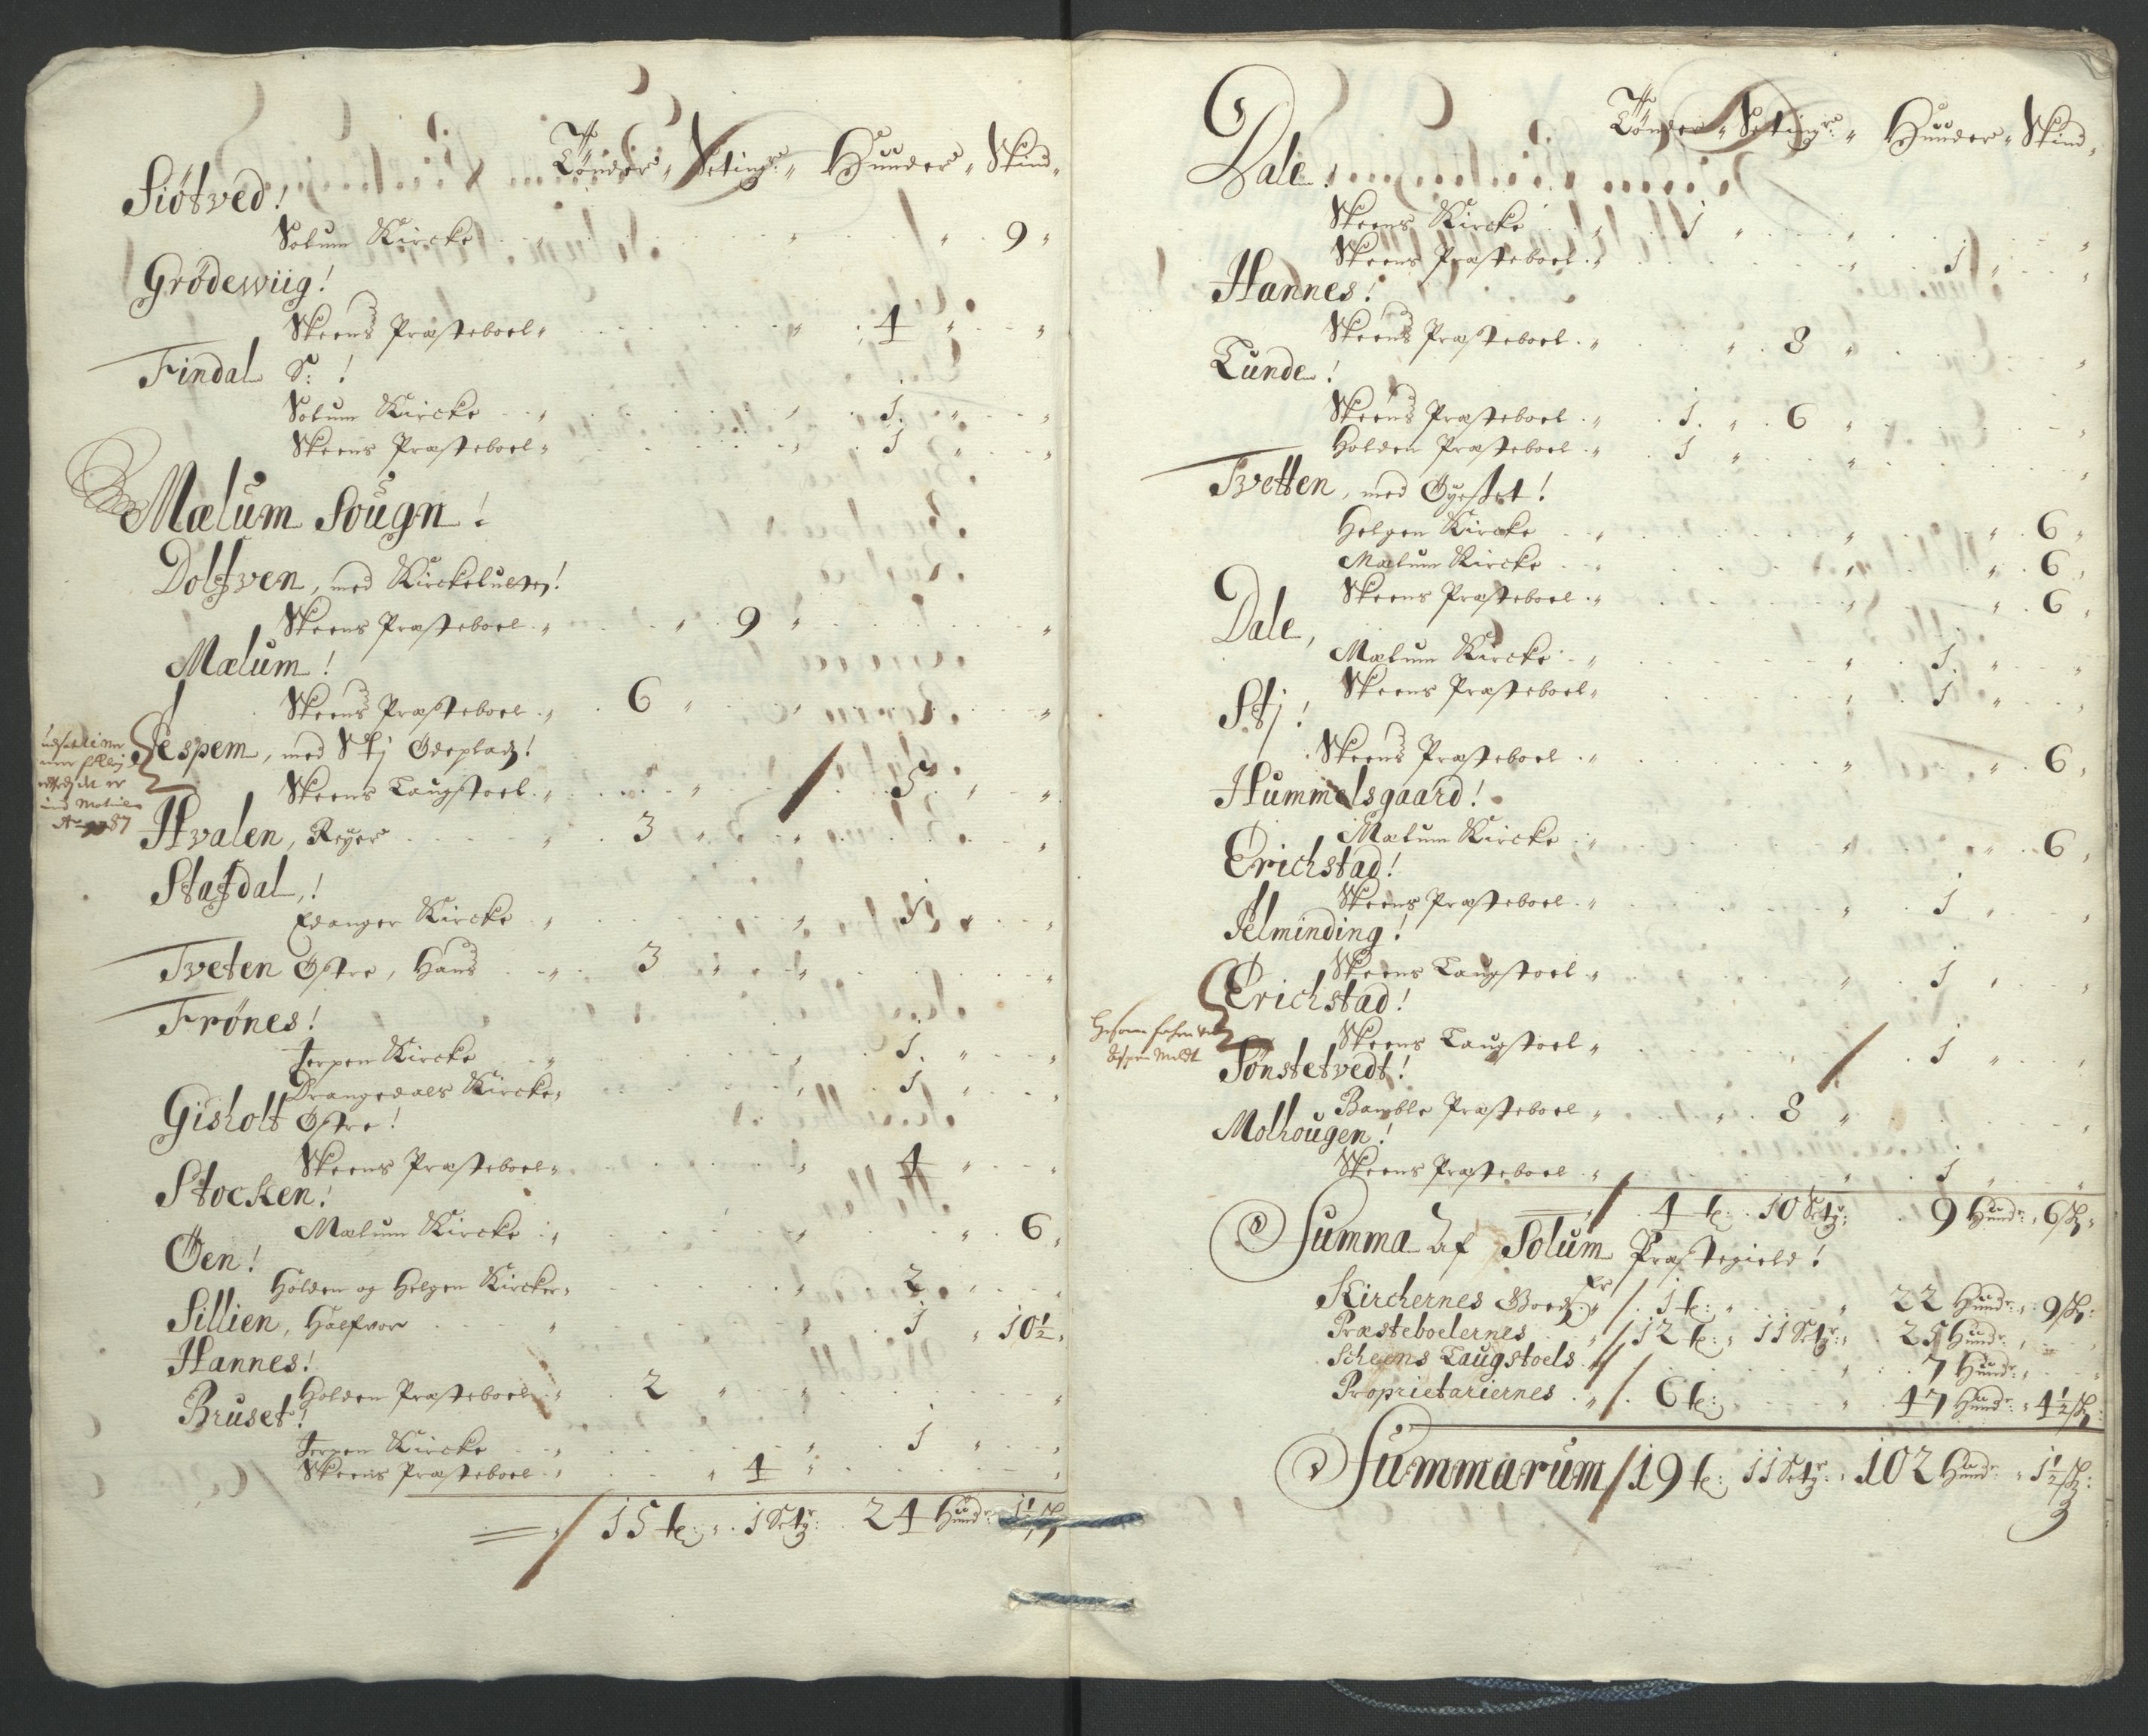 Tønder " Setingr " Hunder " Skind "
Siøtved!
Solum Kircke " " " 9 "
Grødewiig!
Skeens Præsteboel " " 4 " "
Findal S: !
Solum Kircke " " 1. " "
Skeens Præsteboel " " 1 " "
Mælum Sougn!
Dolfven, med Kirckelucten!
Skeens Præsteboel " " 9 " "
Mælum!
Skeens Præsteboel " 6 " " "
Jespem, med Skj Ødepladz!
er
Ao 87
Skeens Laugstoel " " 5 " "
Hvalen, Reyer " 3 " " "
Stafdal,!
Edanger Kircke " " 1 " "
Tveten Østre, Hans " 3 " " "
Frønes!
Jerpen Kircke " " 1. " "
Drangedals Kircke " " 1 " "
Gisholt Østre!
Skeens Præsteboel " " 4 " "
Stocken!
Mælum Kircke " " " 6 "
Øen!
Holden og Helgen Kircker " " 2 " "
Sillien, Halfvor " " 1 " 10½ "
Hannes!
Holden Præsteboel " 2 " " "
Bruset!
Jerpen Kircke " " 1 " "
Skeens Præsteboel " " 4 " "
" / 15 t: " 1 Setgr: 24 Hundr: 1½ sk
Tønder " Setingr: " Hunder " Skind "
Dale!
Skeens Kircke " 1 " " "
Skeens Præsteboel " " 1 " "
Hannes!
Skeens Præsteboel " " 8 " "
Lunde!
Skeens Præsteboel " 1. " 6 " "
Holden Præsteboel " 1 " " "
Tvetten, med Øyestet!
Helgen Kircke " " " 6 "
Mælum Kircke " " " 6 "
Skeens Præsteboel " " " 6 "
Dale,
Mælum Kircke " " 1. " "
Skeens Præsteboel " " 1 " "
Stj!
Skeens Præsteboel " " " 6 "
Hummelsgaard!
Mælum Kircke " " " 6 "
Erichstad!
Skeens Præsteboel " " 1 " "
Jelminding!
Skeens Laugstoel " " 1 " "
Erichstad!
Skeens Laugstoel " " 1 " "
Sønstetvedt!
Bamble Præsteboel " " 8 " "
Molhougen!
Skeens Præsteboel " " 1 " "
" / 4 t: 10 Setgr: 9 Hundr: 6 sk "
Summa af Solum Præstegield!
Kirchernes Goedz " / 1 t: " " 22 Hundr: " 9 sk:
Præsteboelernes " / 12 t: " 11 Setgr: 25 Hundr: "
Scheens Laugstoels " / " 7 Hundr: "
Proprietariernes " / 6 t: " 47 Hundr: " 4½ sk:
Summarum / 19 t: 11 Setgr: " 102 Hundr: " 1½ sk: